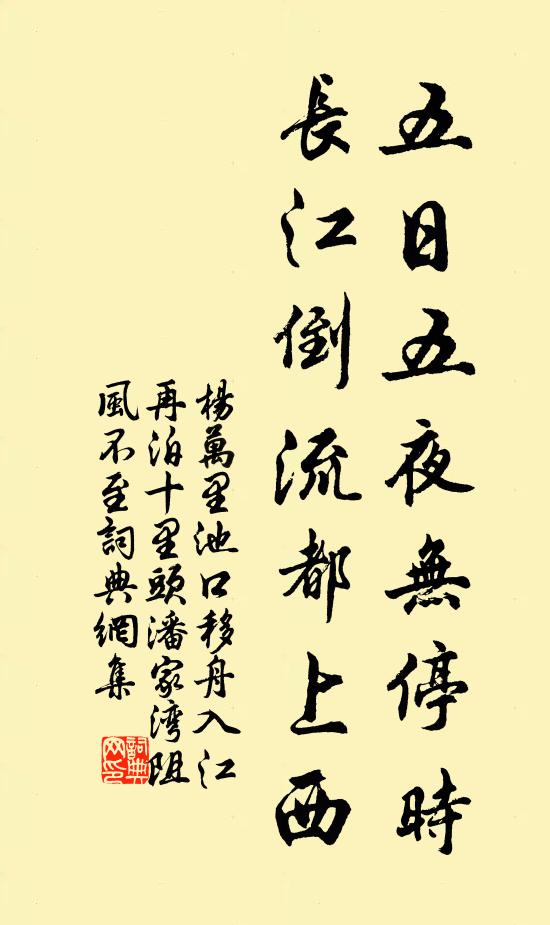 五日五夜無停時
長江倒流都上西
楊萬里池口移舟入江
再泊十里頭潘家湾阻
風不至詞典網集
詞典
网印